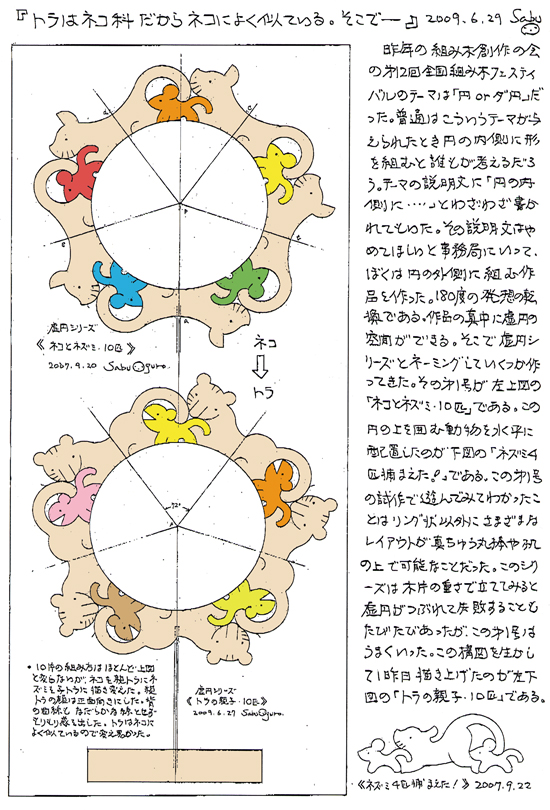 『トラはネコ科だからネコによく似ている。そこで―』2009.6.29 Sabu
昨年の組み木創作の会
の第12回全国組み木フェスティ
バルのテーマは「円 or ダ円」だ
った。普通はこういうテーマが与
えられたとき円の内側に形
を組むと誰もが考えるだろ
う。テーマの説明文に「円の内
側に……」とわざわざ書か
れてもいた。その説明文はや
めてほしいと事務局にいって、
ぼくは円の外側に組む作
品を作った。180度の発想の転
換である。作品の真中に虚円の
空間ができる。そこで虚円シ
リーズとネーミングしていくつか作
ってきた。その第1号が左上図の
「ネコとネズミ・10匹」である。この
円の上を囲む動物を水平に
配置したのが下図の「ネズミ4
匹捕まえた!」である。この第1号
の試作で遊んでみてわかったこ
とはリング状以外にさまざまな
レイアウトが真ちゅう丸棒や
の上で可能なことだった。このシ
リーズは木片の重さで立ててみると
虚円がつぶれて失敗することも
たびたびであったが、この第1号は
うまくいった。この構図を生かし
て1昨日描き上げたのが左下
図の「トラの親子・10匹」である。
虚円シリーズ
《ネコとネズミ・10匹》
2007.9.20 Sabu Oguro.
ネコ
トラ
72°
・10片の組み方はほとんど上図
と変らないが、ネコを親トラにネ
ズミを子トラに描き変えた。親
トラの顔は正面向きにした。背
の曲線もなだらかな線とせず
モリモリ感を出した。トラはネコに
よく似ているので変え易かった。
虚円シリーズ
《トラの親子・10匹》
2009.6.27 Sabu Oguro.
《ネズミ4匹捕まえた!》2007.9.22